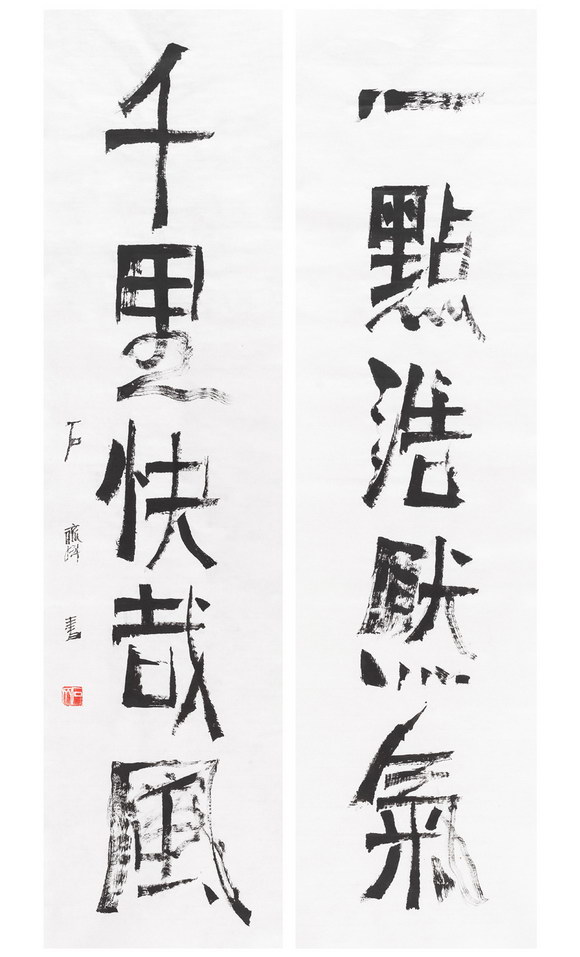 一點浩然氣
千里快哉風
石
書